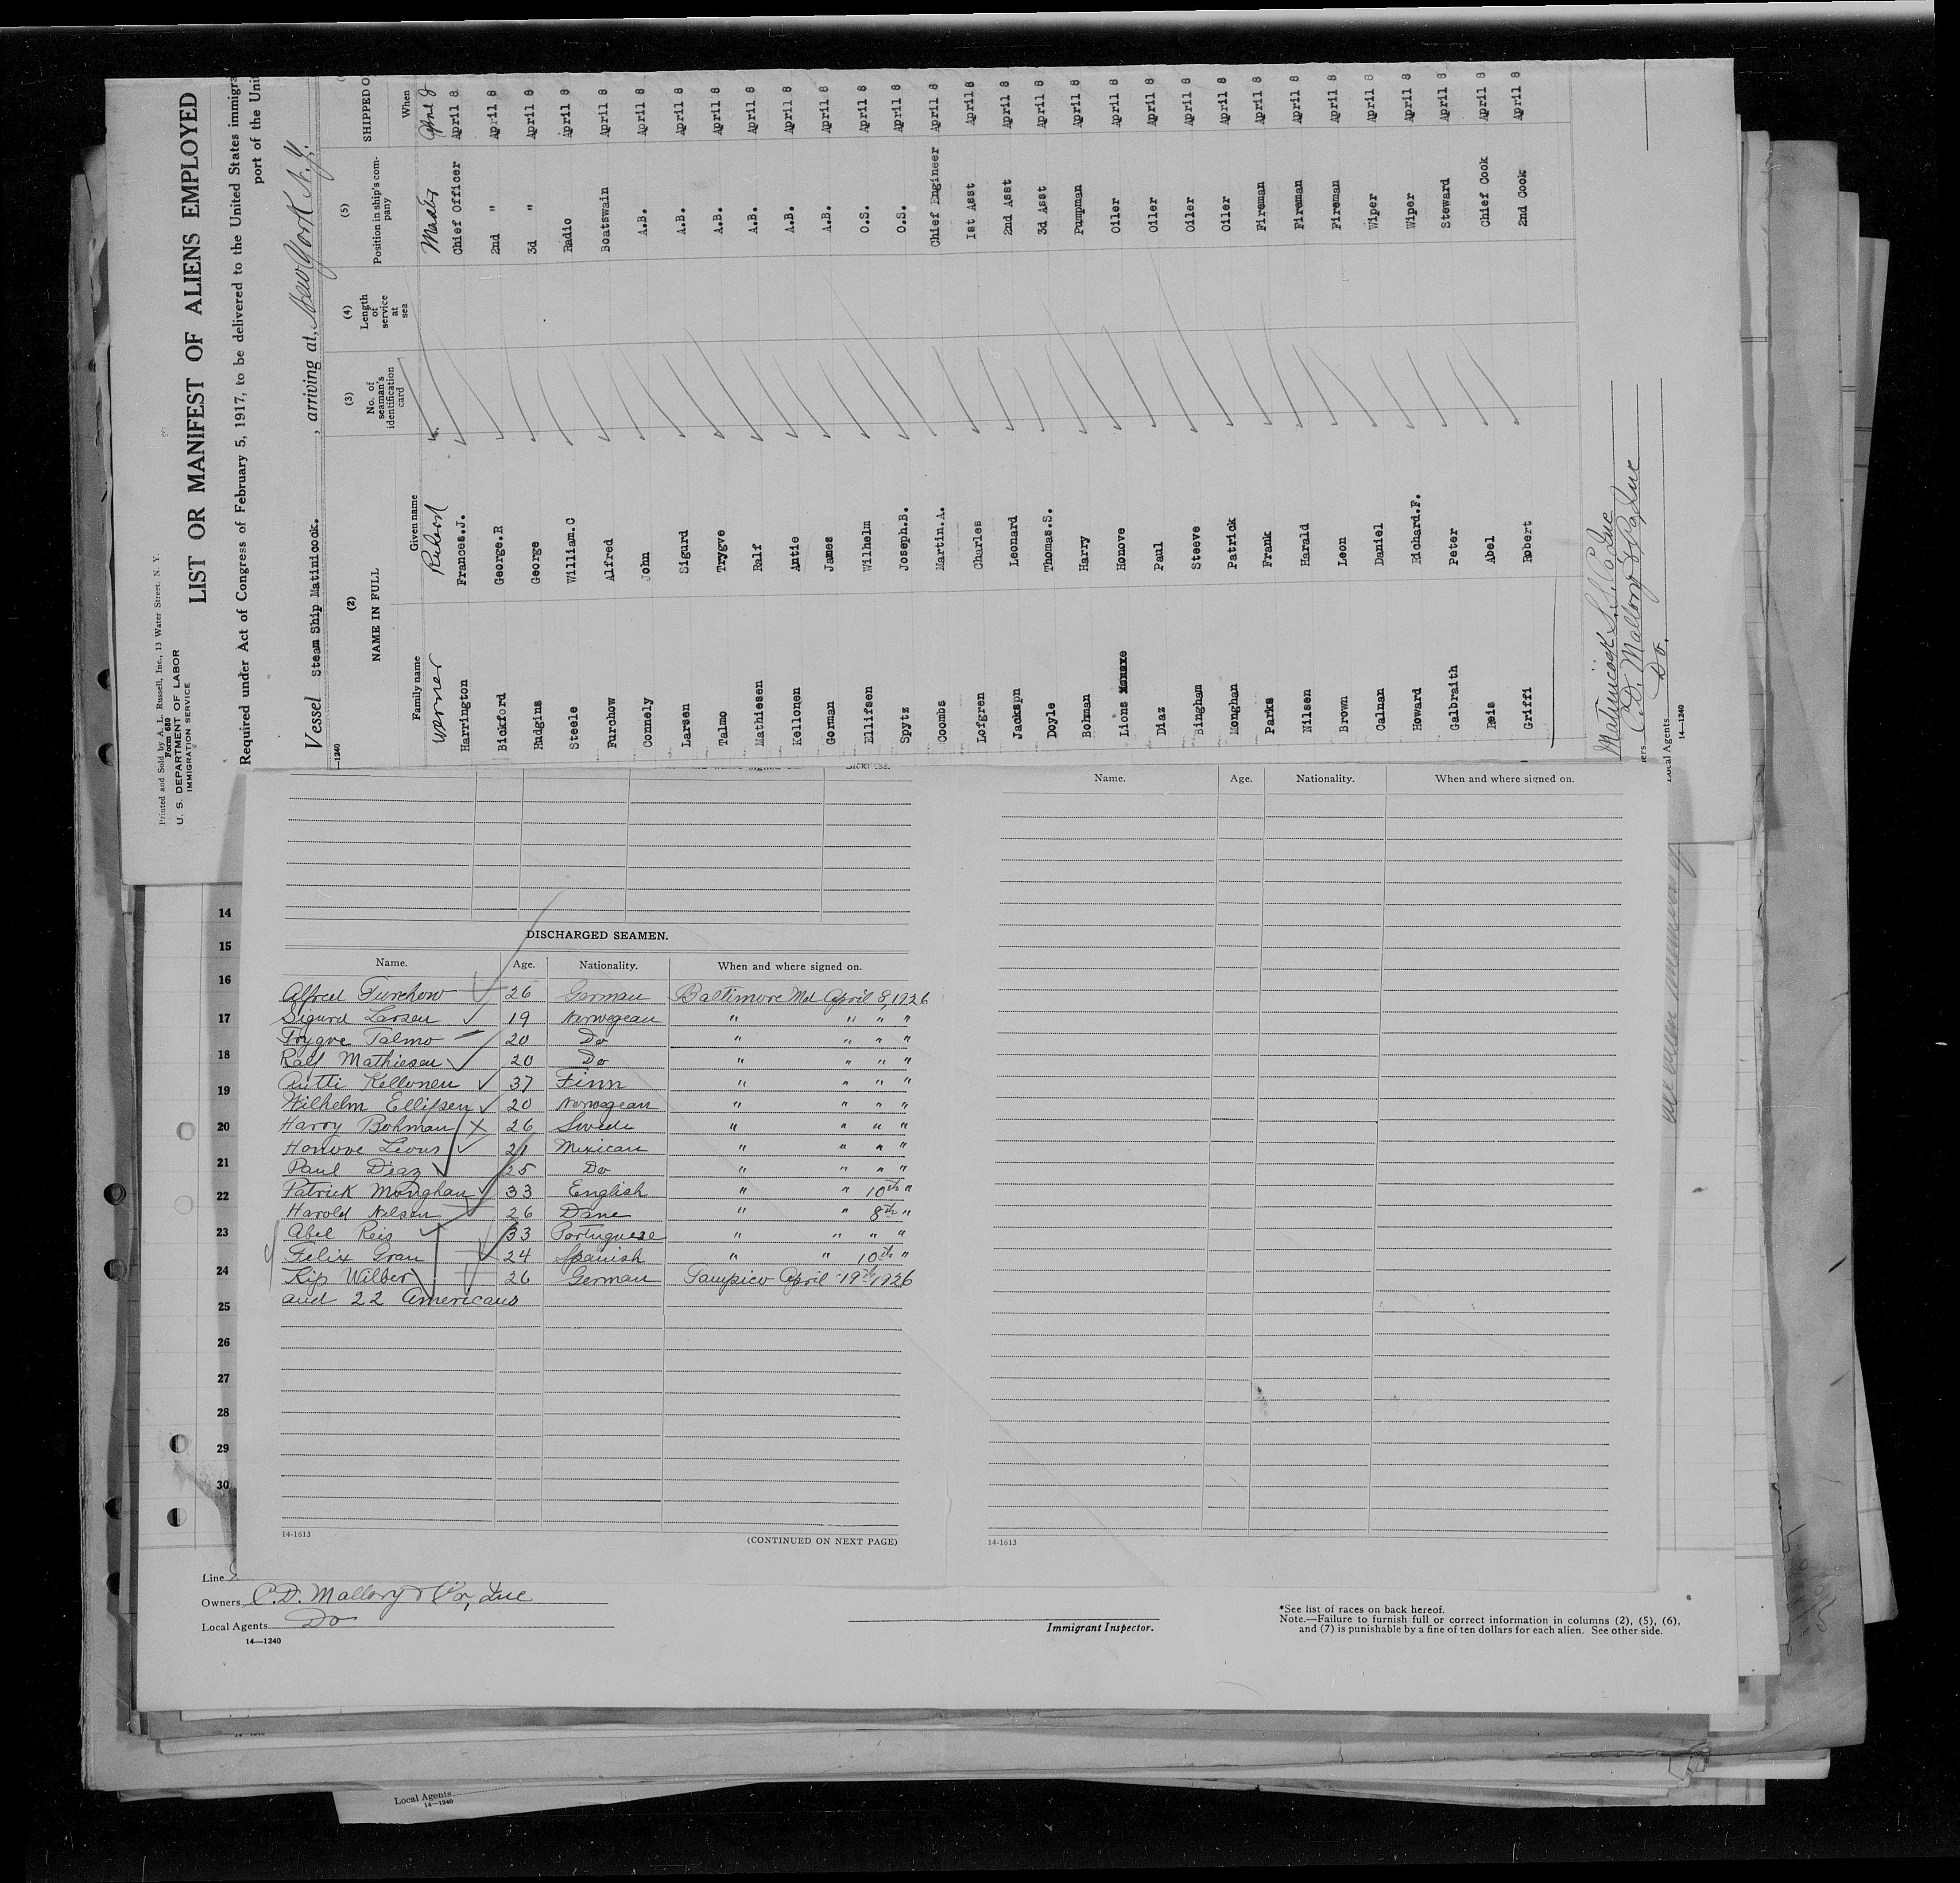 Printed and Sold by A. L. Russell, Inc., 13 Water Street. N. Y.
Form 680
U. S. DEPARTMENT OF LABOR
IMMIGRATION SERVICE
LIST OR MANIFEST OF ALIENS EMPLOYED
Required under Act of Congress of February 5, 1917, to be delivered to the United States immigra
port of the Unit
Vessel Steam Ship Matinicock. , arriving at, New York N.Y.
—1240
(2) (3) (4) (5)
NAME IN FULL No. of seaman's identification card Length of service at sea Position in ship's company SHIPPED O
Family name Given name When
Werner Master
Harrington Frances.J. Chief Officer April 8
Bickford George.R 2nd " April 8
Hudgins George 3d " April 8
Steele William.C Radio April 8
Furchow Alfred Boatswain April 8
Connely John A.B. April 8
Larsen Sigurd A.B. April 8
Talmo Trygve A.B. April 8
Mathiesen Ralf A.B. April 8
Kellonen Antie A.B. April 8
Gorman James A.B. April 8
Ellifsen Wilhelm O.S. April 8
Spytz Joseph.B. O.S. April 8
Coombs Martin.A. Chief Engineer April 8
Lofgren Charles 1st Asst April 8
Jackspn Leonard 2nd Asst April 8
Doyle Thomas.S. 3d Asst April 8
Bohman Harry Pumpman April 8
Lions Honove Oiler April 8
Diaz Paul Oiler April 8
Bingham Steeve Oiler April 8
Monghan Patrick Oiler April 8
Parks Frank Fireman April 8
Nilsen Harald Fireman April 8
Brown Leon Fireman April 8
Calnan Daniel Wiper April 8
Howard Richard.F. Wiper April 8
Galbraith Peter Steward April 8
Reis Abel Chief Cook April 8
Griffi Robert 2nd Cook April 8
Matinicock S.S. Co Inc
ers C.D. Mallory & Co, Inc
Local Agents Do.
14—1240
DISCHARGED SEAMEN.
Name. Age. Nationality. When and where signed on.
Alfred Furchow 26 German Baltimore Md April 8, 1926
Sigurd Larsen 19 Norwegean " " " "
Trygve Talmo 20 Do " " " "
Ralf Mathiesen 20 Do " " " "
Antti Kellonen 37 Finn " " " "
Wilhelm Ellifsen 20 Norwegean " " " "
Harry Bohman 26 Swede " " " "
Honove Lions 21 Mexican " " " "
Paul Diaz 25 Do " " " "
Patrick Monghan 33 English " " 10th "
Harold Nilsen 26 Dane " " 8th "
Abel Reis 33 Portuguese " " " "
Felix Gran 24 Spanish " " 10th "
Kip Wilber 26 German Tampico April 19th 1926
and 22 Americans
14-1613
(CONTINUED ON NEXT PAGE)
Name. Age. Nationality. When and where signed on.
14-1613
14
15
16
17
18
19
20
21
22
23
24
25
26
27
28
29
30
Line
Owners C.D. Mallory & Co, Inc
Local Agents Do
14—1240
Immigrant Inspector.
*See list of races on back hereof.
Note.—Failure to furnish full or correct information in columns (2), (5), (6),
and (7) is punishable by a fine of ten dollars for each alien. See other side.
Local Agents
14—1240